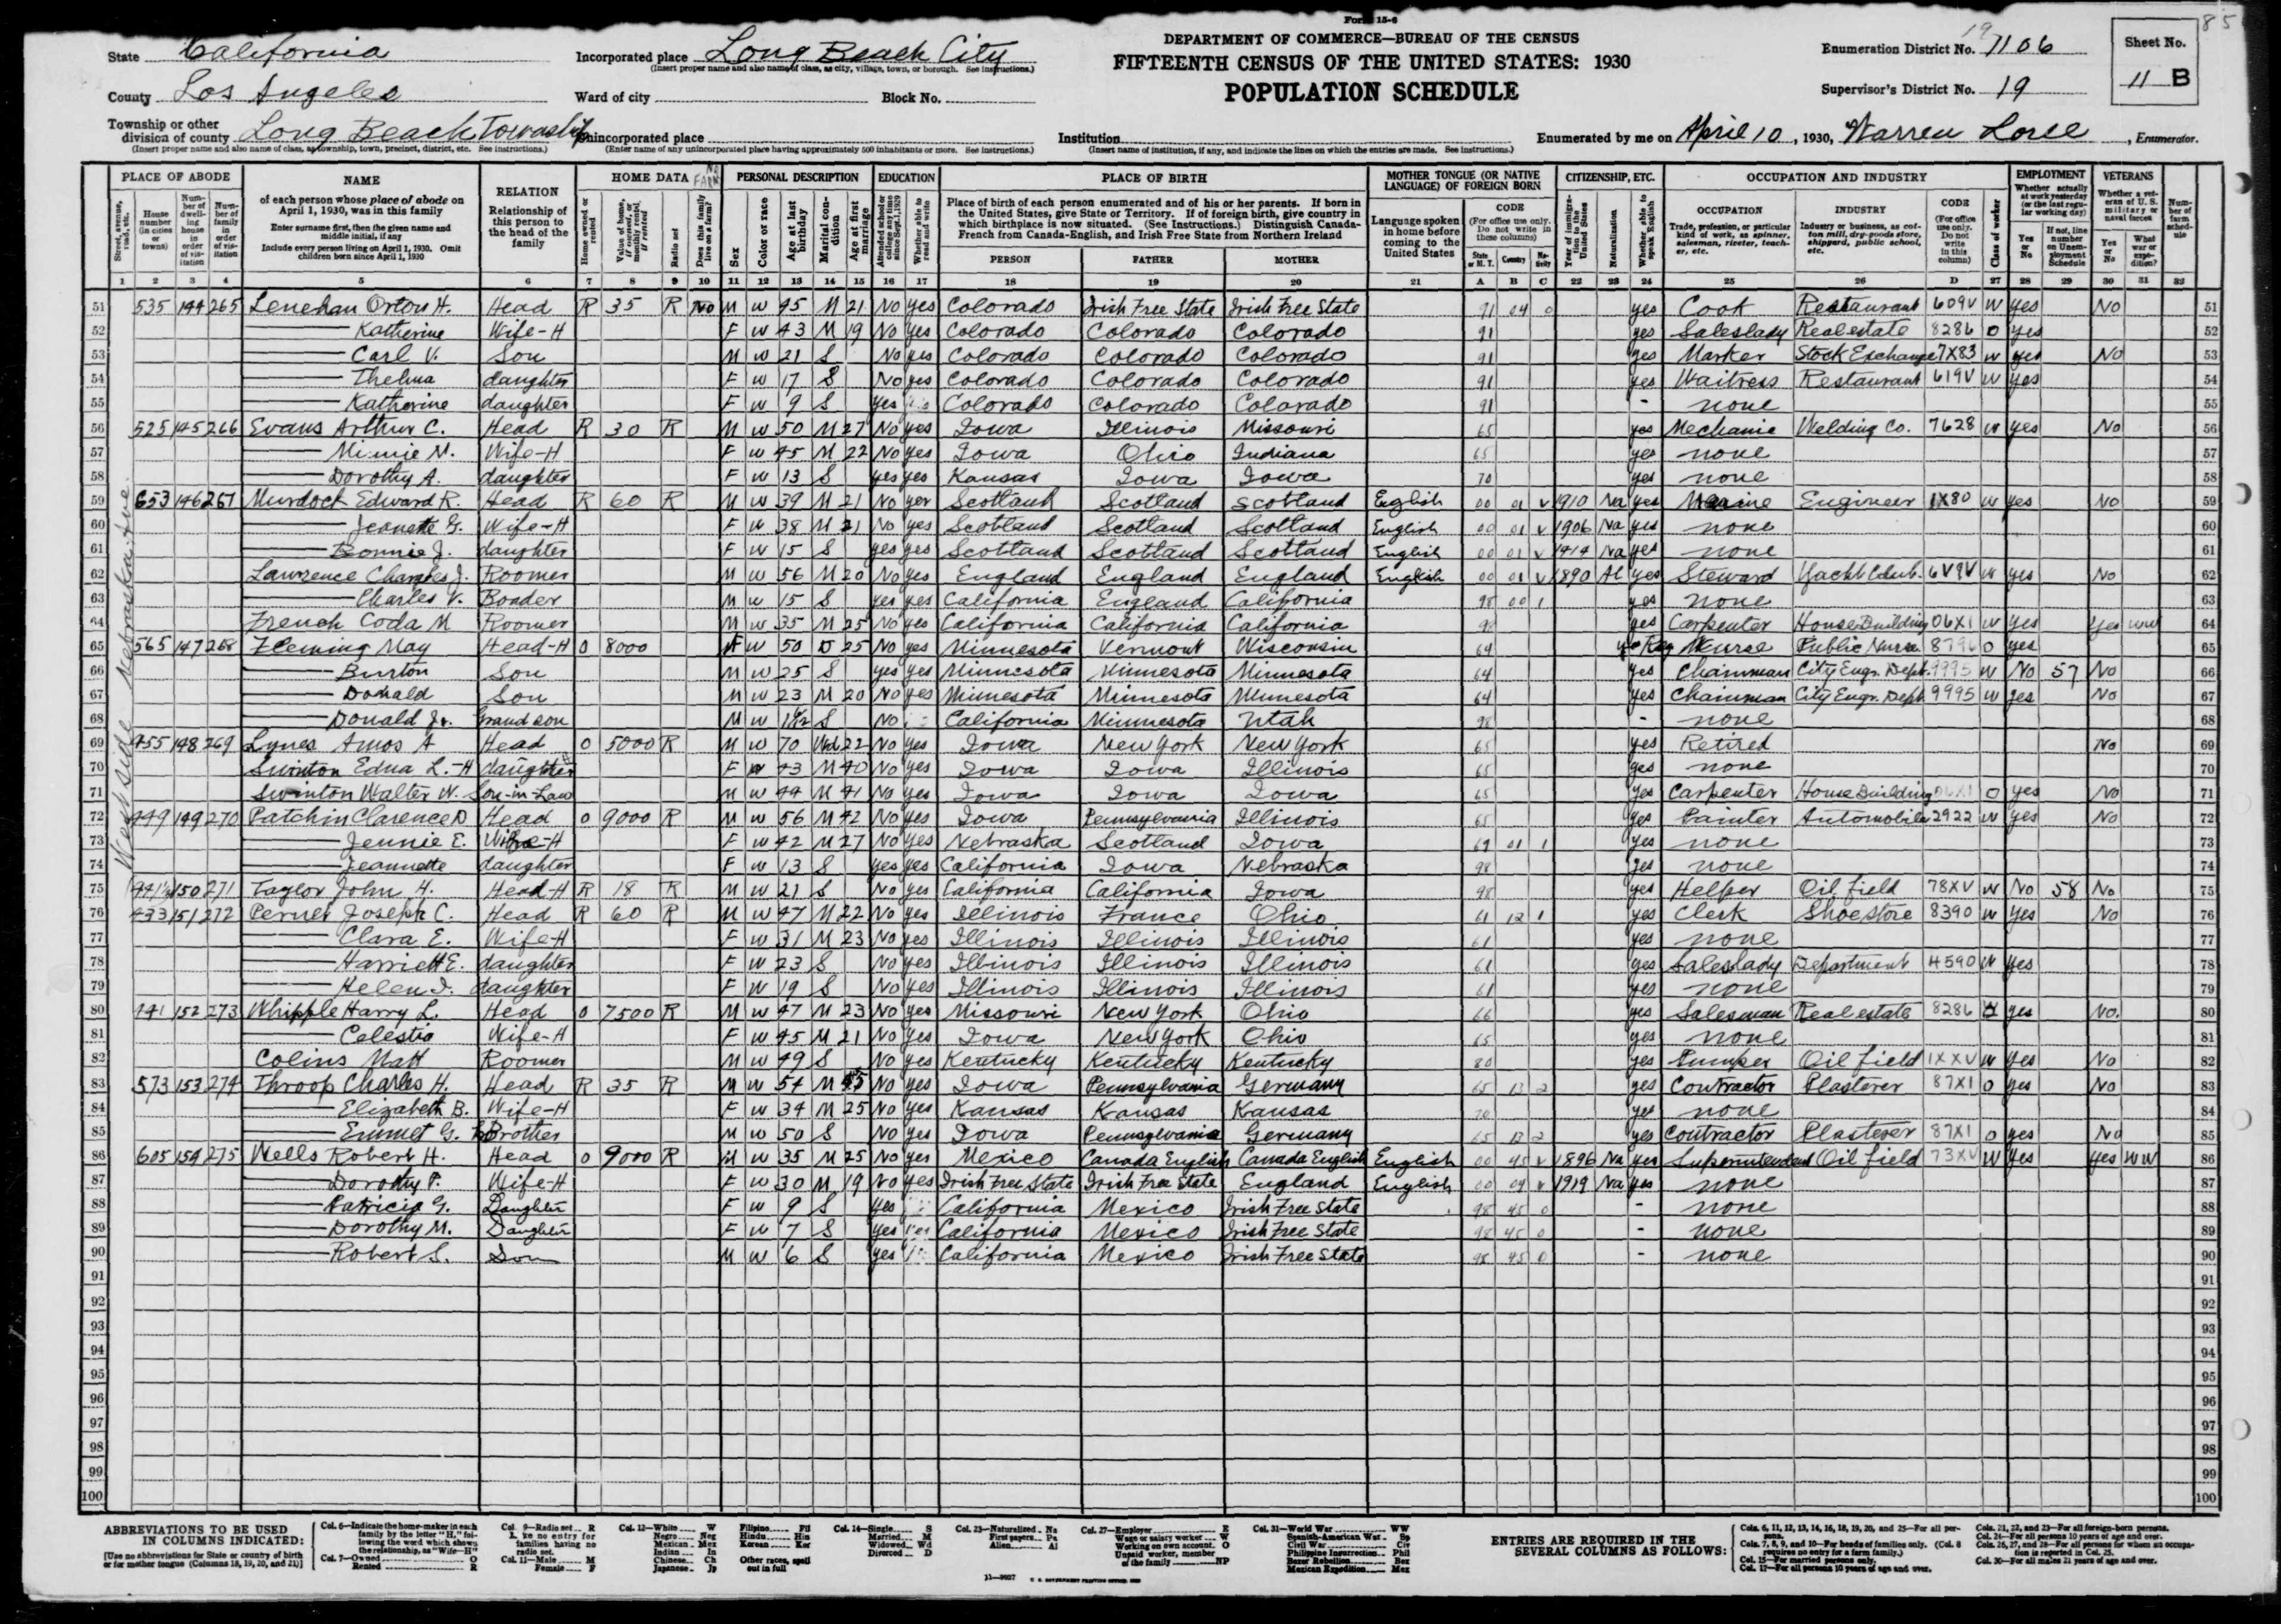 Form 15-6
85
State California
Incorporated place Long Beach City
(Insert proper name and also name of class, as city, village, town, or borough. See instructions.)
DEPARTMENT OF COMMERCE—BUREAU OF THE CENSUS
FIFTEENTH CENSUS OF THE UNITED STATES: 1930
POPULATION SCHEDULE
Enumeration District No. 19 1106
Sheet No.
11 B
County Los Angeles
Ward of city Block No.
Supervisor's District No. 19
Township or other division of county Long Beach Township
(Insert proper name and also name of class, as township, town, precinct, district, etc. See instructions.)
Unincorporated place
(Enter name of any unincorporated place having approximately 500 inhabitants or more. See instructions.)
Institution
(Insert name of institution, if any, and indicate the lines on which the entries are made. See instructions.)
Enumerated by me on April 10, 1930, Warren Loree, Enumerator.
PLACE OF ABODE NAME RELATION HOME DATA PERSONAL DESCRIPTION EDUCATION PLACE OF BIRTH MOTHER TONGUE (OR NATIVE LANGUAGE) OF FOREIGN BORN CITIZENSHIP, ETC. OCCUPATION AND INDUSTRY EMPLOYMENT VETERANS
1 2 3 4 5 6 7 8 9 10 11 12 13 14 15 16 17 18 19 20 21 A B C 22 23 24 25 26 D 27 28 29 30 31 32
West side Nebraska Ave.
51 535 144 265 Lenehan Orton H. Head R 35 R No M W 45 M 21 No Yes Colorado Irish Free State Irish Free State 91 04 0 yes Cook Restaurant 609V W yes No 51
52 Katherine Wife-H F W 43 M 19 No Yes Colorado Colorado Colorado 91 yes Saleslady Real estate 8286 O yes 52
53 Carl V. Son M W 21 S No yes Colorado Colorado Colorado 91 yes Marker Stock Exchange 7X83 W yes No 53
54 Thelma daughter F W 17 S No yes Colorado Colorado Colorado 91 yes Waitress Restaurant 619V W yes 54
55 Katherine daughter F W 9 S Yes Colorado Colorado Colorado 91 - none 55
56 525 145 266 Evans Arthur C. Head R 30 R M W 50 M 27 No yes Iowa Illinois Missouri 65 yes Mechanic Welding Co. 7628 W yes No 56
57 Minnie M. Wife-H F W 45 M 22 No yes Iowa Ohio Indiana 65 yes none 57
58 Dorothy A. daughter F W 13 S yes yes Kansas Iowa Iowa 70 yes none 58
59 653 146 267 Murdock Edward R. Head R 60 R M W 39 M 21 No yes Scotland Scotland Scotland English 00 01 V 1910 Na yes Marine Engineer 1X80 W yes No 59
60 Jeanette G. Wife-H F W 38 M 21 No yes Scotland Scotland Scotland English 00 01 V 1906 Na yes none 60
61 Bonnie J. daughter F W 15 S yes yes Scotland Scotland Scotland English 00 01 V 1914 Na yes none 61
62 Lawrence Charles J. Roomer M W 56 M 20 No Yes England England England English 00 01 V 1890 Al yes Steward Yacht Club. 6V9V W yes No 62
63 Charles V. Boader M W 15 S yes yes California England California 98 00 1 yes none 63
64 French Coda M Roomer M W 35 M 25 No yes California California California 98 yes Carpenter House Building 06X1 W yes Yes WW 64
65 565 147 268 Fleming May Head-H O 8000 F W 50 D 25 No yes Minnesota Vermont Wisconsin 64 yes Reg Nurse Public Nurse 8796 O yes 65
66 Burton Son M W 25 S yes yes Minnesota Minnesota Minnesota 64 yes Chainman City Engr. Dept. 9995 W No 57 No 66
67 Donald Son M W 23 M 20 No yes Minnesota Minnesota Minnesota 64 yes Chainman City Engr. Dept. 9995 W yes No 67
68 Donald Jr. Grand son M W S No California Minnesota Utah 98 - none 68
69 455 148 269 Lynes Amos A Head O 5000 R M W 70 Wd 22 No Yes Iowa New York New York 65 yes Retired No 69
70 Swinton Edna L.-H daughter F W 43 M 40 No yes Iowa Iowa Illinois 65 yes none 70
71 Swinton Walter W. Son-in-Law M W 44 M 41 No yes Iowa Iowa Iowa 65 yes Carpenter House Building 06X1 O yes No 71
72 449 149 270 Patchin Clarence D Head O 9000 R M W 56 M 42 No yes Iowa Pennsylvania Illinois 65 yes Painter Automobile 2922 W yes No 72
73 Jennie E. Wife-H F W 42 M 27 No Yes Nebraska Scotland Iowa 69 01 1 yes none 73
74 Jeannette daughter F W 13 S Yes yes California Iowa Nebraska 98 yes none 74
75 441½ 150 271 Taylor John H. Head-H R 18 R M W 21 S No yes California California Iowa 98 yes Helper Oil field 78XV W No 58 No 75
76 433 151 272 Pernet Joseph C. Head R 60 R M W 47 M 22 No yes Illinois France Ohio 61 12 1 yes Clerk Shoe store 8390 W yes No 76
77 Clara E. Wife-H F W 31 M 23 No yes Illinois Illinois Illinois 61 yes none 77
78 Harriett E. daughter F W 23 S No yes Illinois Illinois Illinois 61 yes Saleslady Department 4590 W yes 78
79 Helen I. daughter F W 19 S No yes Illinois Illinois Illinois 61 yes none 79
80 741 152 273 Whipple Harry L. Head O 7500 R M W 47 M 23 No yes Missouri New York Ohio 66 yes Salesman Real estate 8286 yes No. 80
81 Celestia Wife-H F W 45 M 21 No yes Iowa New York Ohio 65 yes none 81
82 Colins Matt Roomer M W 49 S No yes Kentucky Kentucky Kentucky 80 yes Pumper Oil field 1XXV W yes No 82
83 573 153 274 Throop Charles H. Head R 35 R M W 54 M 45 No yes Iowa Pennsylvania Germany 65 13 2 yes Contractor Plasterer 87X1 O yes No 83
84 Elizabeth B. Wife-H F W 34 M 25 No yes Kansas Kansas Kansas 70 yes none 84
85 Emmet G. Brother M W 50 S No yes Iowa Pennsylvania Germany 65 13 2 yes Contractor Plasterer 87X1 O yes No 85
86 605 154 275 Wells Robert H. Head O 9000 R M W 35 M 25 No yes Mexico Canada English Canada English English 00 45 V 1896 Na yes Superintendent Oil field 73XV W yes yes WW 86
87 Dorothy P. Wife-H F W 30 M 19 No yes Irish Free State Irish Free State England English 00 04 V 1919 Na yes none 87
88 Patricia G. Daughter F W 9 S Yes California Mexico Irish Free State 98 45 0 - none 88
89 Dorothy M. Daughter F W 7 S Yes California Mexico Irish Free State 98 45 0 - none 89
90 Robert S. Son M W 6 S Yes California Mexico Irish Free State 98 45 0 - none 90
91 91
92 92
93 93
94 94
95 95
96 96
97 97
98 98
99 99
100 100
ABBREVIATIONS TO BE USED IN COLUMNS INDICATED:
[Use no abbreviations for State or country of birth or for mother tongue (Columns 18, 19, 20, and 21)]
ENTRIES ARE REQUIRED IN THE SEVERAL COLUMNS AS FOLLOWS: